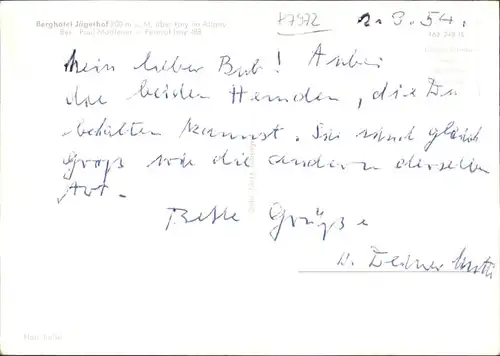 Berghotel Jägerhof 900 m ü. M. über Isny im Allgäu
Bes.: Paul Musterer - Fernruf Isny 488
k7972
2.3.54.
162 248 IS
Mein lieber Bub! Anbei
die beiden Hemden, die Du
behalten kannst. Sie sind gleich
groß wie die andern derselben
Art.
Beste Grüße
v. Deiner Mutti